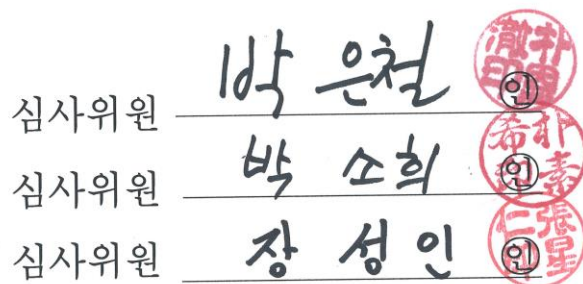 심사위원 박 은철 인
심사위원 박 소희 인
심사위원 장 성 인 인